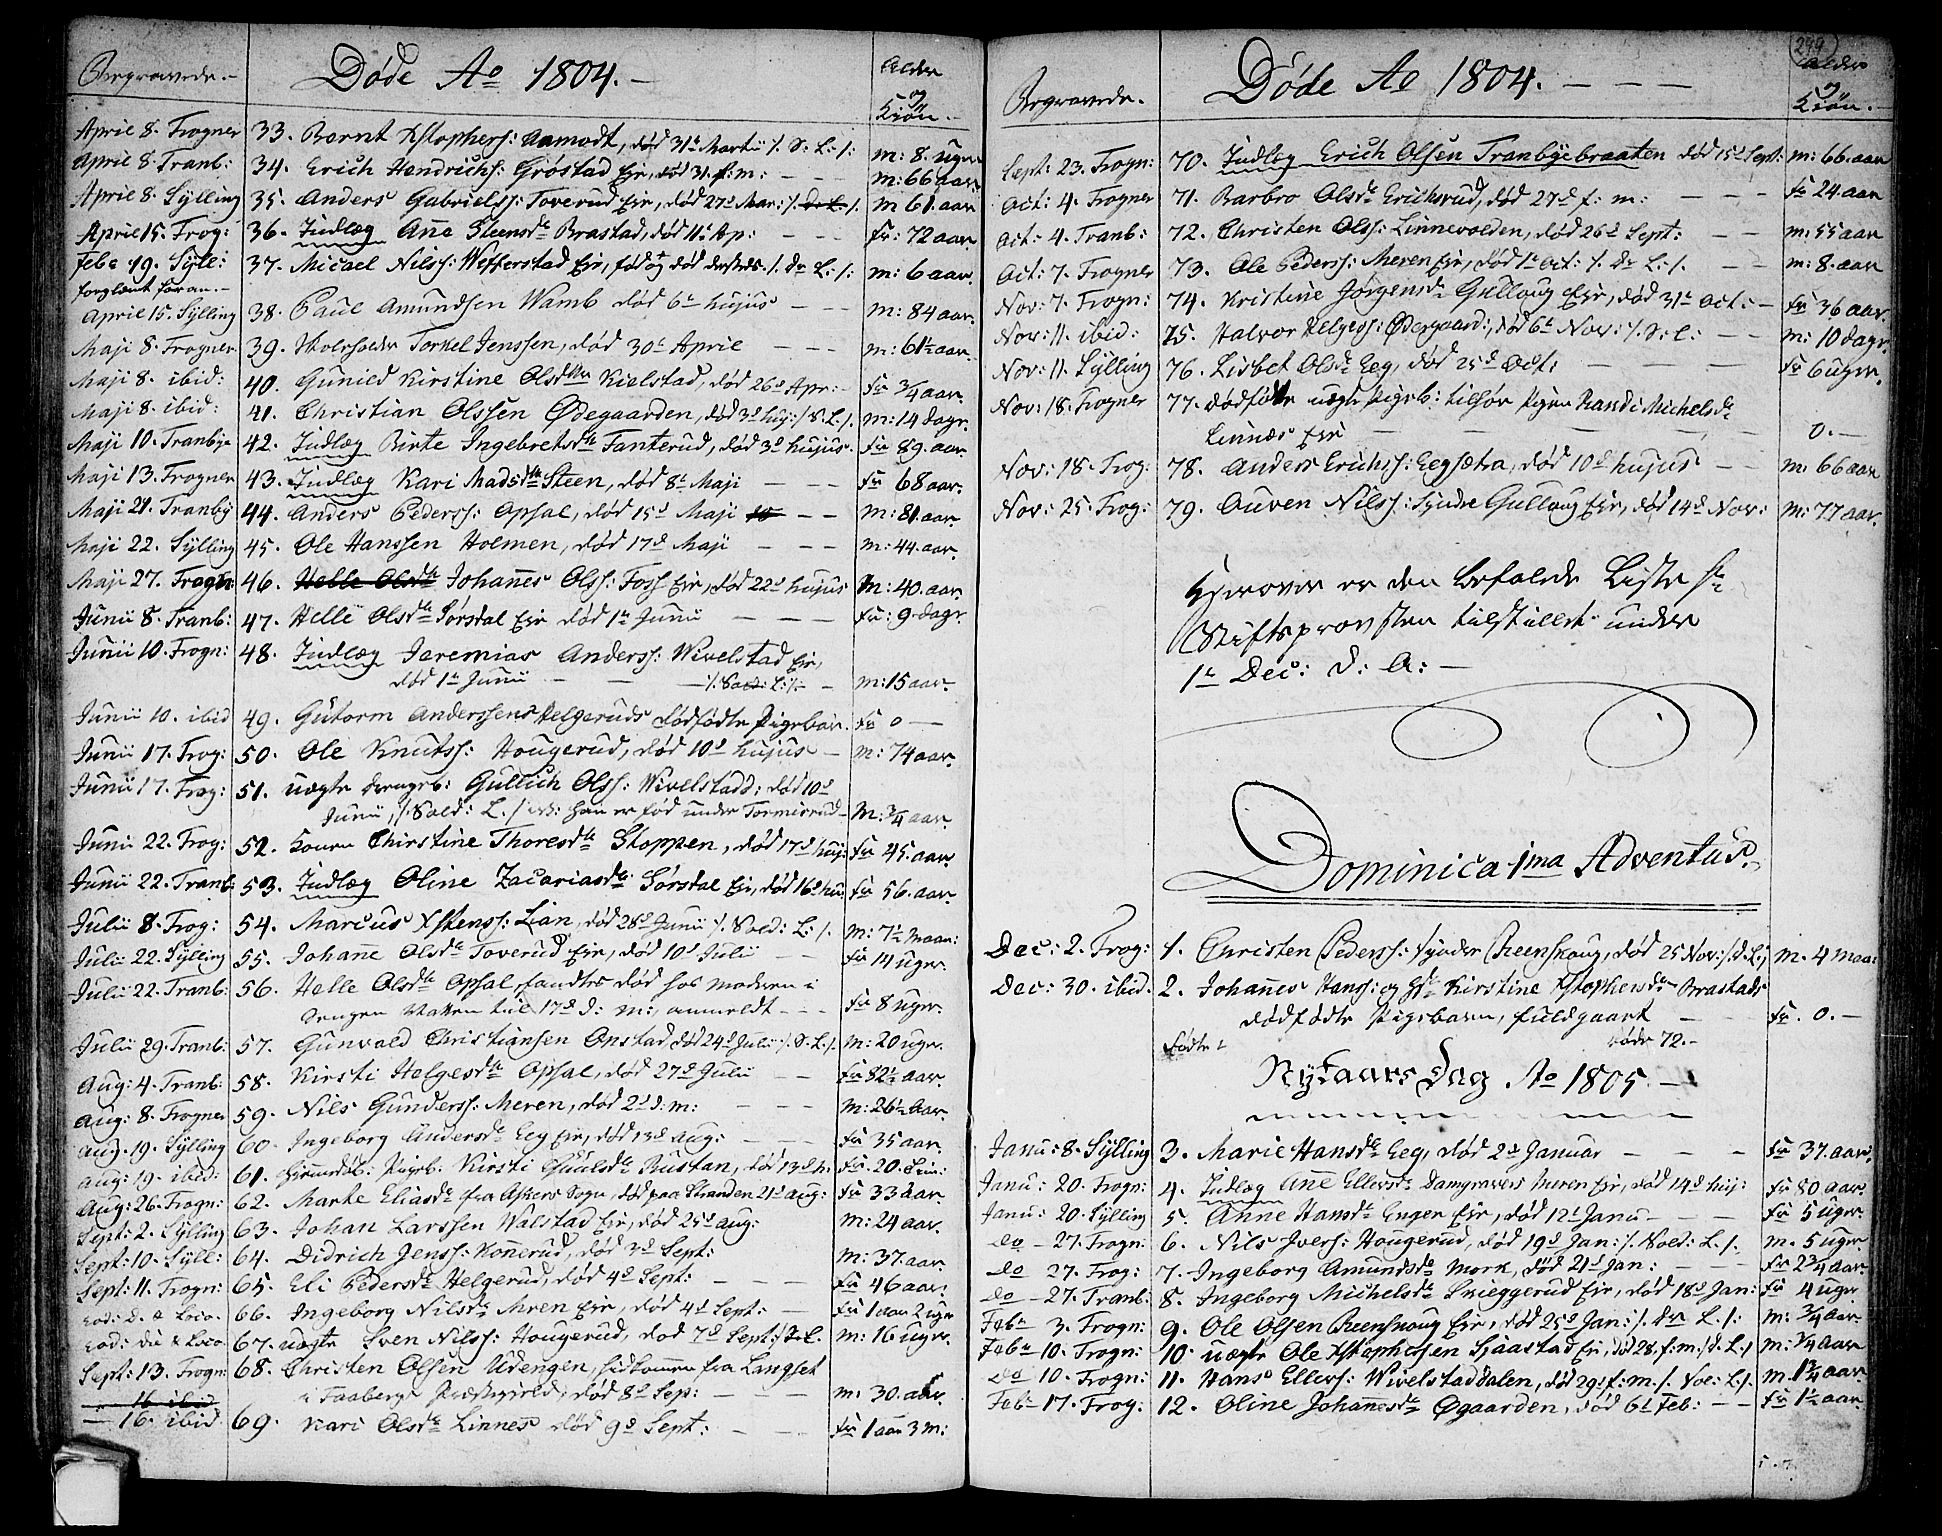 Begravede.
Døde Ao 1804.
Alder og Kiøn.
April 8. Frogner 33. Bernt Xstophers: Aamodt, død 31te Martii /. S: L: /: m: 8. uger
April 8. Tranb: 34. Erich Hendrichs: Grøstad Eje, død 31. f: m: m: 66 aar.
April 8. Sylling 35. Anders Gabrielss: Toverud Eje, død 27d Mar: m 61. aar
April 15. Frog: 36. Indlæg Anne Steensdr Brastad, død 11te Ap: fr: 72 aar.
Febr 19. Syll: 37. Micael Nilss: Wefferstad Eje, død m: 6 aar.
forglemt foran.
April 15. Sylling 38. Paul Amundsen Wamb død 6te hujus m: 84 aar.
Maji 8. Frogner 39. Torkel Jenssen, død 30te April m: 61½ aar.
Maji 8. ibid: 40. Gunild Kirstine Olsdtr Kielstad, død 26d Apr: fr ¾ aar.
Maji 8. ibid: 41. Christian Olssen Ødegaarden, død 3d huj: /: S: L. /. m: 14 dagr.
Maji 10. Tranbye 42. Indlæg Birte Ingebretsdr Fanterud, død 3d hujus. fr 89. aar
Maji 13. Frogner 43. Indlæg Kari Madsdr Steen, død 8te Maji fr 68 aar.
Maji 21. Tranby 44. Anders Peders: Opsal, død 15d Maji m: 81. aar.
Maji 22. Sylling 45. Ole Hanssen Holmen, død 17d Maji m: 44. aar.
Maji 27. Frogn: 46. Helle Olsdr Johannes Olss: Foss Eje, død 22d hujus m: 40. aar.
Junii 8. Tranb: 47. Helle Olsdr Sørsdal Eje død 1te Junii fr: 9 dagr
Junii 10. Frogn: 48. Indlæg Jeremias Anderss: Wivelstad Eje,
død 1te Junii m: 15 aar.
Junii 10. ibid 49. Gutorm Anderssens Helgeruds dødfødte Pigebarn. fr 0
Junii 17. Frog: 50. Ole Knutss: Hougerud, død 10d hujus m: 74 aar.
Junii 17. Frog: 51. uægte Drengeb: Gullich Olss: Wivelstad, død 10d
Junii, /: Sold: L. / han er fød under Tormisrud m: ¾ aar.
Junii 22. Frog: 52. Konen Christine Thoresdr Stoppen, død 17d huj: fr 45. aar.
Junii 22. Tranb: 53. Indlæg Oline Zacariasdr Sørsdal Eje, død 16d hu. fr 56. aar.
Julii 8. Frog: 54. Marcus Xstenss: Lian, død 28d Junii /. Sold: L: /. m: 7½ maan:
Julii 22. Sylling 55. Johanne Olsdr Toverud Eje, død 10d Julii fr 14 uger.
Julii 22. Tranb: 56. Helle Olsdr Opsal, fandtes død hos moderen i
Sengen Natten til 17d d: m:, anmeldt fr 8 uger.
Julii 29. Tranb: 57. Gunvald Christiansen Opstad, død 24d Julii /. S. L. /. m: 20 uger.
Aug: 4. Tranb: 58. Kirsti Helgesdr Opsal, død 27d Julii fr 32½ aar.
Aug: 8. Frogner 59. Nils Gunderss: Meren, død 2d d: m: m: 26½ aar.
Aug. 19. Sylling 60. Ingeborg Andersdr Eeg Eje, død 13d Aug: fr 35 aar.
Aug: 19. ibid: 61. Pigeb: Kirsti Rustan, død 13d fr: 20.
Aug: 26. Frogn: 62. Marte Eliasdr fra Askers Sogn, død paa Stranden 21d Aug: fr 33 aar.
Sept: 2. Sylling 63. Johan Larssen Walstad Eje, død 25d Aug: m: 24 aar.
Sept: 10. Syll: 64. Didrich Jenss: Konnerud, død 3d Sept: m: 37. aar.
Sept: 11. Frogn: 65. Eli Pedersdr Helgerud, død 4d Sept: fr 46 aar.
eod: d. & loco. 66. Ingeborg Nilsdr Meren Eje, død 4d Sept: fr 1 aar 2 uger
eod: die & loco 67. uægte Sven Nilss: Hougerud, død 7d Sept: m: 16 uger.
Sept: 13. Frogn: 68. Christen Olsen Udengen, fra Langset
i Faaberg Præstegield, død 8d Sep: m: 30. aar
16 ibid
16. ibid 69. Kari Olsdr Linnes død 9d Sept: fr 1 aar 3 m:
299
Begravede.
Døde Ao 1804.
Alder og Kiøn.
Sept: 23. Frogn: 70. Indlæg Erich Olsen Tranbyebraaten død 15d Sept: m: 66. aar
Oct: 4. Frogner 71. Barbro Olsdr Erichsrud, død 27d f: m: fr 24 aar
Oct: 4. Tranb: 72. Christen Olss: Linnevolden, død 26d Sept: m: 55 aar
Oct: 7. Frogner 73. Ole Pederss: Meren Eje, død 1te Oct: /. Dr L: /. m: 8. aar
Nov: 7. Frogn: 74. Kristine Jørgensdr Gulloug Eje, død 31te Oct: fr 36 aar.
Nov: 11. ibid: 75. Halvor Helgess: Ødegaard:, død 6te Nov: /. S: L: m: 10 dagr.
Nov: 11. Sylling 76. Lisbet Olsdr Eeg, død 25d Oct: fr 6 uger.
Nov: 18. Frogner 77. dødfødte uægte Pigeb: tilhør Pigen Randi Michelsdr
Linnes Eje 0.
Nov: 18. Frog: 78. Anders Erichss: Eegsætra, død 10d hujus m: 66 aar
Nov: 25. Frog: 79. Auven Nilss: Syndre Gulloug Eje, død 14d Nov: m: 77 aar.
Herover er den befalede Liste Hr
Stiftsprovsten tilstillet under
1te Dec: d: A:
Dominica 1ma Adventus.
Dec: 2. Frog: 1. Christen Pederss: Syndre Reenskoug, død 25 Nov: /: d. L. m. 4 maa:
Dec: 30. ibid. 2. Johannes Hanss: og Kirstine Xstophersdr Brastads
dødfødte Pigebarn, fuldgaaet fr. 0.
Fødte Døde 72.
Nytaars Dag Ao 1805.
Janu: 8. Sylling 3. Marie Hansdr Eeg, død 2d Januar fr 37. aar.
Janu: 20. Frogn: 4. Indlæg Ane Ellersdr Damgravers Meren Eje, død 14d huj: fr 80 aar.
Janu: 20. Sylling 5. Anne Hansdr Enger Eje, død 12te Janu fr 5 uger.
do 27. Frogn: 6. Nils Iverss: Hougerud, død 19d Jan: /. Sold: L. /. m. 5 uger.
do 27. Frog: 7. Ingeborg Amundsdr Mork, død 21d Jan: fr 2¾ aar.
do 27. Tranb: 8. Ingeborg Michelsdr Skieggerud Eje, død 18d Jan: fr 4 uger
Febr 3. Frogn: 9. Ole Olsen Reenskoug Eje, død 25d Jan: /. L. /: m: ¾ aar.
Febr 10. Frogn: 10. uægte Ole Xstophersen Sjaastad Eje, død 28. f: m: /: d. L. / m: ¼ aar
do 10. Frogn: 11. Hans Ellerss: Wivelstaddalen, død 29. f: m. /. Sol: L/. m. 1¾ aar.
Febr 17. Frog: 12. Oline Johannesdr Øgaarden, død 6te Feb: fr 1½ aar.